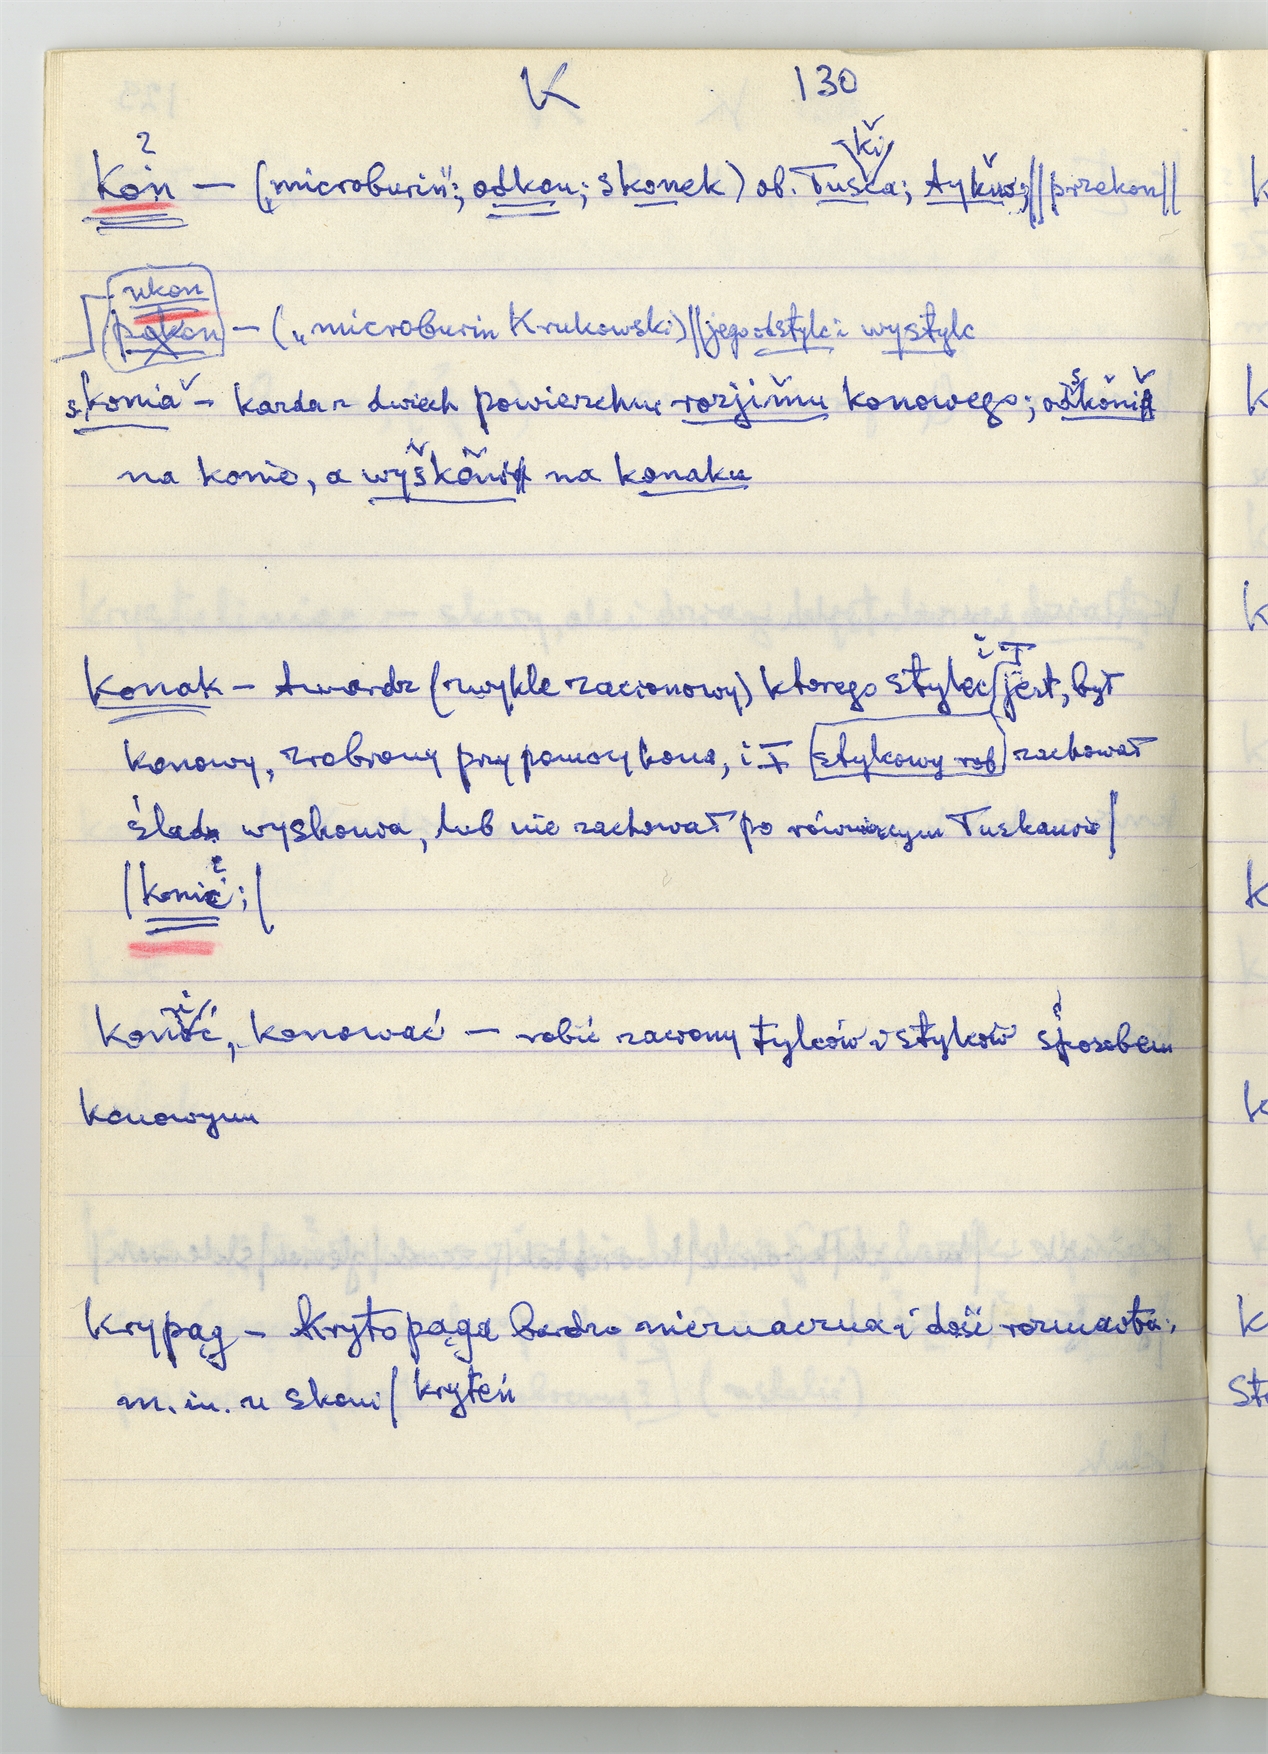 K 130
Koń — („microburin"; odkon; skonek) ob. Tuska; tykus; || przekon ||
ukon
pokon — („microburin Krukowski) || jego odstylc i wystylc
skonia — karda z dwiech powierzchni rozjimu konowego; odskoni
na konie, a wyskoni na konaku
Konak — twardz (zwykle zacionowy) ktorego stylec jest, był
konowy, zrobiony przy pomocy kona, i stykowy rob zachował
ślad wyskonia, lub nie zachował po równiejszym Tuskaniu |
| konić; |
konić, konować — robić zawony tylców i styków sposobem
konowym
Krypąg — krytopąga bardzo nieznaczna i dość rozmaita;
m. in. u skoni / kryteń